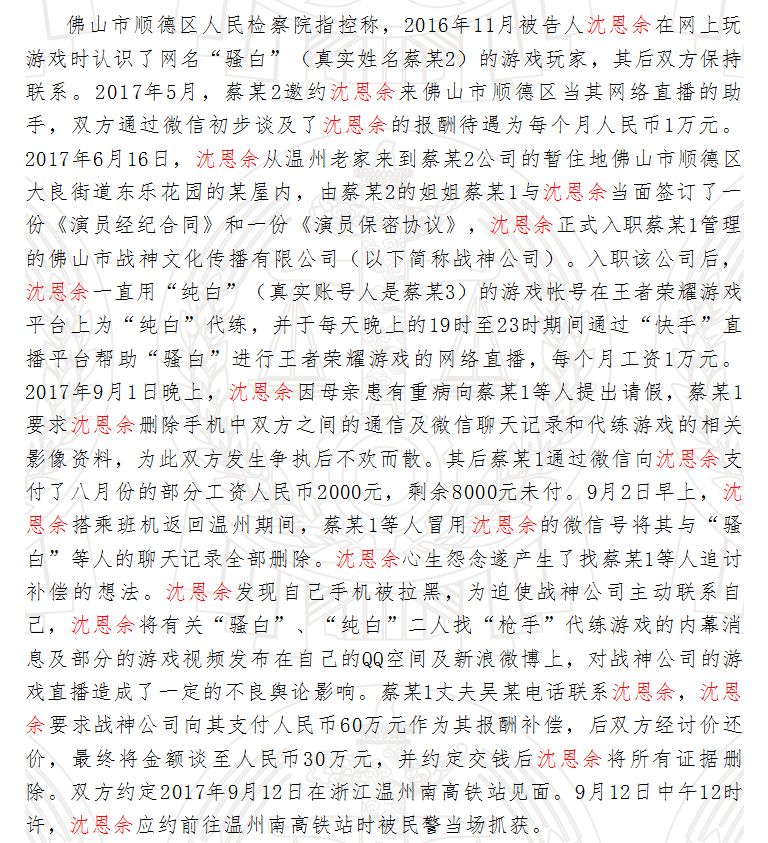 佛山市顺德区人民检察院指控称，2016年11月被告人沈恩余在网上玩
游戏时认识了网名“骚白”（真实姓名蔡某2）的游戏玩家，其后双方保持
联系。2017年5月，蔡某2邀约沈恩余来佛山市顺德区当其网络直播的助
手，双方通过微信初步谈及了沈恩余的报酬待遇为每个月人民币1万元。
2017年6月16日，沈恩余从温州老家来到蔡某2公司的暂住地佛山市顺德区
大良街道东乐花园的某屋内，由蔡某2的姐姐蔡某1与沈恩余当面签订了一
份《演员经纪合同》和一份《演员保密协议》，沈恩余正式入职蔡某1管理
的佛山市战神文化传播有限公司（以下简称战神公司）。入职该公司后，
沈恩余一直用“纯白”（真实账号人是蔡某3）的游戏帐号在王者荣耀游戏
平台上为“纯白”代练，并于每天晚上的19时至23时期间通过“快手”直
播平台帮助“骚白”进行王者荣耀游戏的网络直播，每个月工资1万元。
2017年9月1日晚上，沈恩余因母亲患有重病向蔡某1等人提出请假，蔡某1
要求沈恩余删除手机中双方之间的通信及微信聊天记录和代练游戏的相关
影像资料，为此双方发生争执后不欢而散。其后蔡某1通过微信向沈恩余支
付了八月份的部分工资人民币2000元，剩余8000元未付。9月2日早上，沈
恩余搭乘班机返回温州期间，蔡某1等人冒用沈恩余的微信号将其与“骚
白”等人的聊天记录全部删除。沈恩余心生怨念遂产生了找蔡某1等人追讨
补偿的想法。沈恩余发现自己手机被拉黑，为迫使战神公司主动联系自
己，沈恩余将有关“骚白”、“纯白”二人找“枪手”代练游戏的内幕消
息及部分的游戏视频发布在自己的QQ空间及新浪微博上，对战神公司的游
戏直播造成了一定的不良舆论影响。蔡某1丈夫吴某电话联系沈恩余，沈恩
余要求战神公司向其支付人民币60万元作为其报酬补偿，后双方经讨价还
价，最终将金额谈至人民币30万元，并约定交钱后沈恩余将所有证据删
除。双方约定2017年9月12日在浙江温州南高铁站见面。9月12日中午12时
许，沈恩余应约前往温州南高铁站时被民警当场抓获。